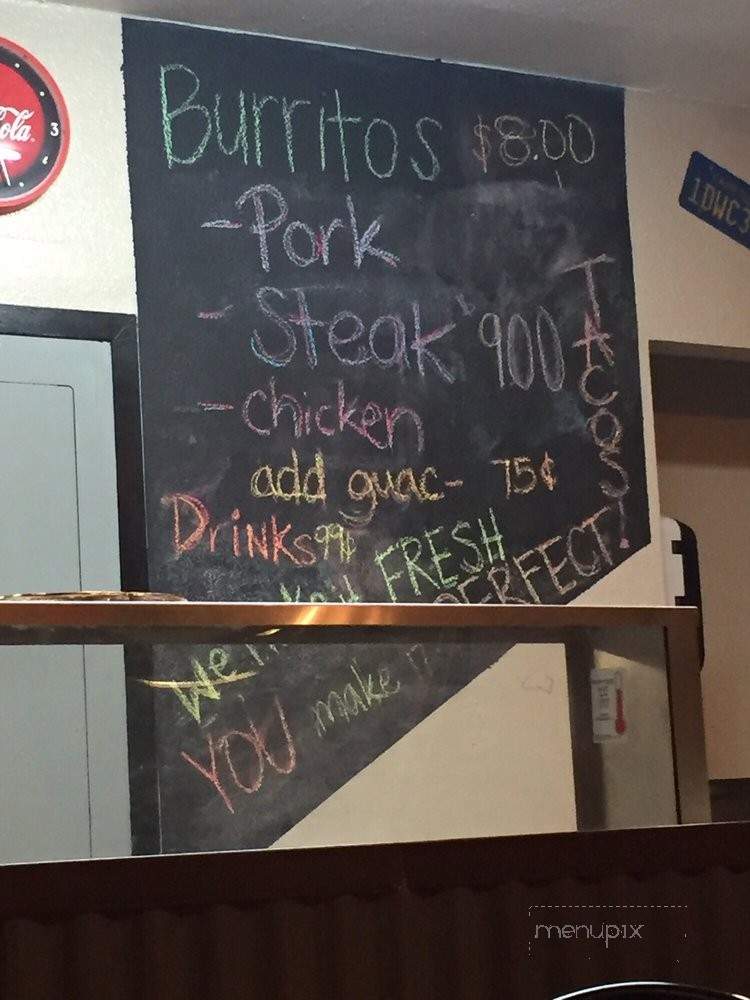 Burritos $8.00
- Pork
- Steak 9.00
- chicken
add guac- 75¢
Drinks 99¢
TACOS!
FRESH
PERFECT
we'll
YOU make
Cola
3
4
1DWC3
menupix